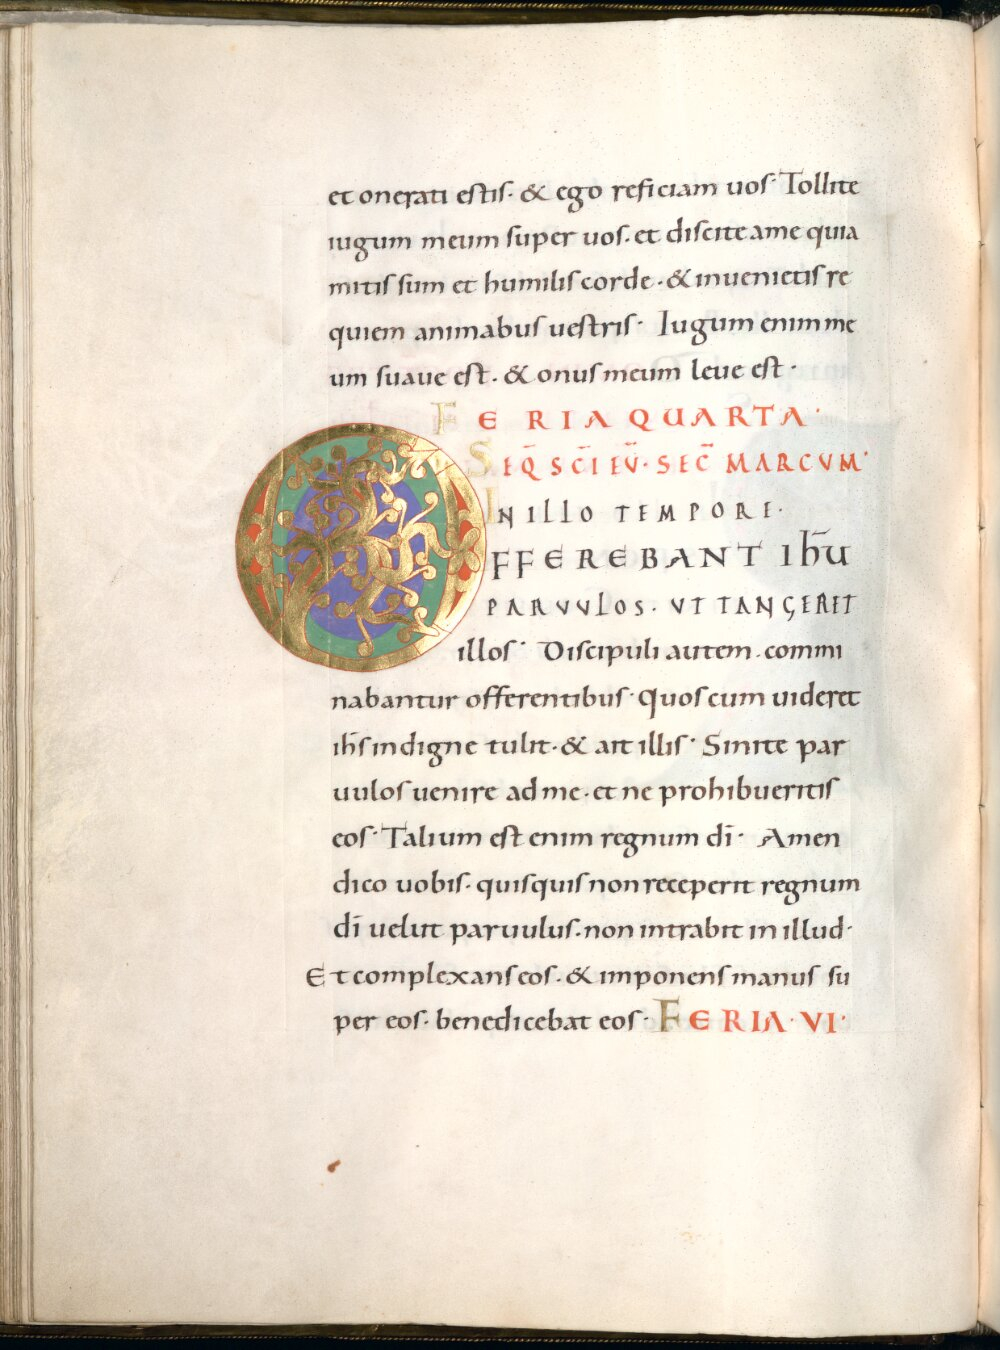 et onerati estis · & ego reficiam uos · Tollite
iugum meum super uos · et discite ame quia
mitis sum et humilis corde · & inuenietis re
quiem animabus uestris · Iugum enim me
um suaue est · & onus meum leue est ·
FERIA QUARTA ·
SEQ̄ SC̄I EŪ · SEC̄ MARCVM ·
IN ILLO TEMPORE ·
OFFEREBANT IHŪ
PARVVLOS · VT TANGERET
illos · Discipuli autem · commi
nabantur offerentibus · Quos cum uideret
ih̄s indigne tulit · & ait illis · Sinite par
uulos uenire ad me · et ne prohibueritis
eos · Talium est enim regnum dī · Amen
dico uobis · quisquis non receperit regnum
dī uelut paruulus · non intrabit in illud ·
Et complexans eos · & imponens manus su
per eos · benedicebat eos · FERIA · VI ·